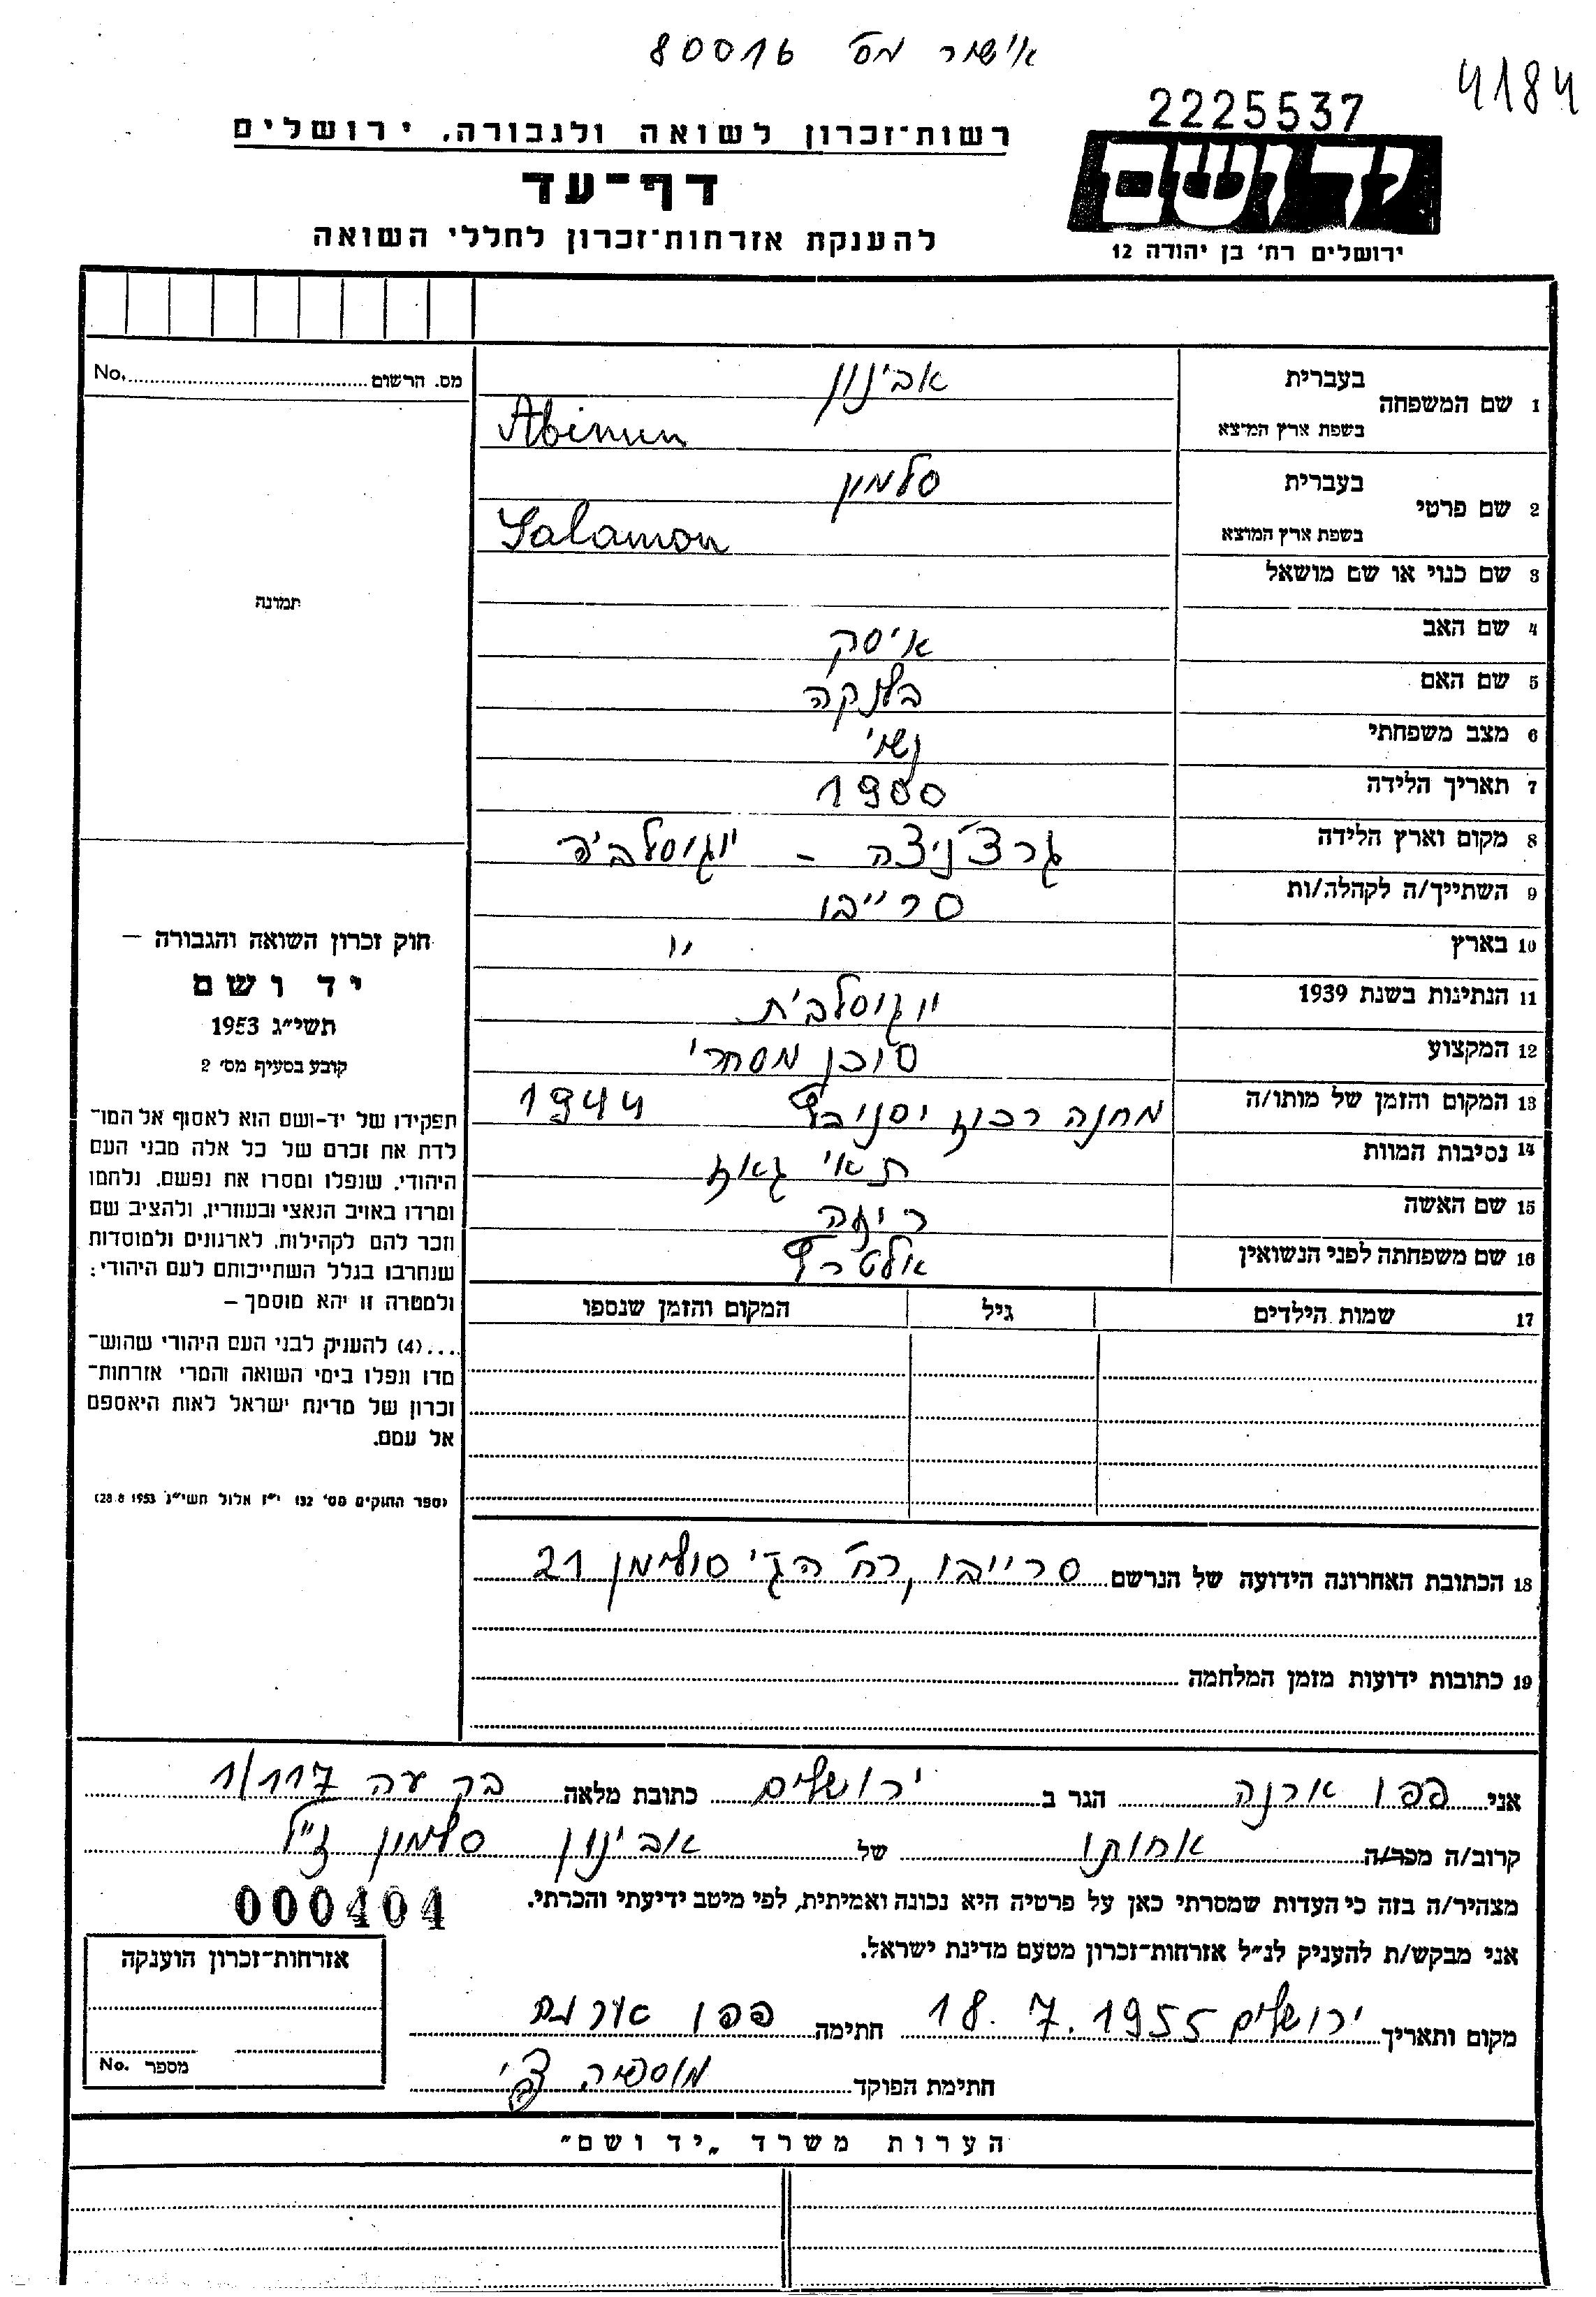 אישור מס' 80016
4184
2225537
יד ושם
ירושלים רח' בן יהודה 12
רשות־זכרון לשואה ולגבורה, ירושלים
דף־עד
להענקת אזרחות־זכרון לחללי השואה
מס. הרשום No.
תמונה
1 שם המשפחה בעברית אבינון
בשפת ארץ המוצא Abinun
2 שם פרטי בעברית סלמון
בשפת ארץ המוצא Salamon
3 שם כנוי או שם מושאל
4 שם האב איסק
5 שם האם בלנקה
6 מצב משפחתי נשוי
7 תאריך הלידה 1900
8 מקום וארץ הלידה גרצ'ניצה - יוגוסלביה
9 השתייך/ה לקהלה/ות סרייבו
10 בארץ יו
11 הנתינות בשנת 1939 יוגוסלבית
12 המקצוע סוכן מסחרי
13 המקום והזמן של מותו/ה מחנה רכוז יסנובץ 1944
14 נסיבות המוות תאי גאז
15 שם האשה
16 שם משפחתה לפני הנשואין אלטרץ
17 שמות הילדים גיל המקום והזמן שנספו
חוק זכרון השואה והגבורה –
יד ושם
תשי״ג 1953
קובע בסעיף מס' 2
תפקידו של יד-ושם הוא לאסוף אל המו־
לדת את זכרם של כל אלה מבני העם
היהודי, שנפלו ומסרו את נפשם, נלחמו
ומרדו באויב הנאצי ובעוזריו, ולהציב שם
וזכר להם לקהילות, לארגונים ולמוסדות
שנחרבו בגלל השתייכותם לעם היהודי;
ולמטרה זו יהא מוסמך –
...(4) להעניק לבני העם היהודי שהוש־
מדו ונפלו בימי השואה והמרי אזרחות־
זכרון של מדינת ישראל לאות היאספם
אל עמם.
(ספר החוקים מס' 132 י״ז אלול תשי״ג 28.8.1953)
18 הכתובת האחרונה הידועה של הנרשם סרייבו, רח' הג'י סולימן 21
19 כתובות ידועות מזמן המלחמה
אני פפו ארנה הגר ב ירושלים כתובת מלאה בקעה 1/117
קרוב/ה מכר/ה אחותו של אבינון סלמון ז״ל
מצהיר/ה בזה כי העדות שמסרתי כאן על פרטיה היא נכונה ואמיתית, לפי מיטב ידיעתי והכרתי.
אני מבקש/ת להעניק לנ״ל אזרחות־זכרון מטעם מדינת ישראל.
000404
אזרחות־זכרון הוענקה
מספר No.
מקום ותאריך ירושלים 18.7.1955 חתימה פפו ארנה
חתימת הפוקד
הערות משרד „יד ושם״